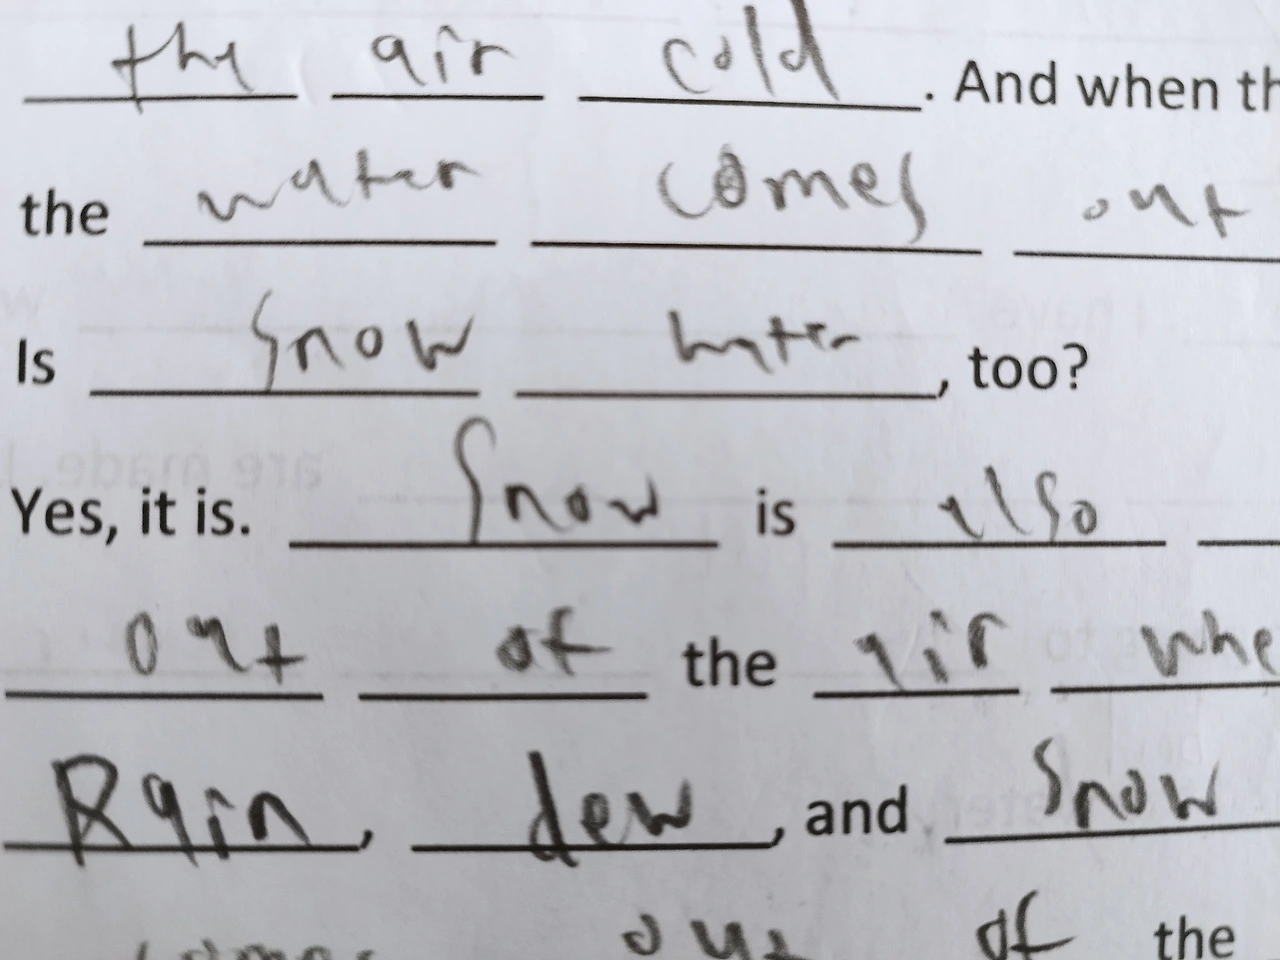 the air cold. And when th
the water comes out
Is Snow water, too?
Yes, it is. Snow is also
out of the air whe
Rain, dew, and Snow
comes out of the